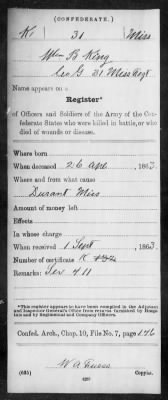 (CONFEDERATE.)
K 31 Miss
Wm B King
Co G. 31 Miss Regt
Name appears on a
Register*
of Officers and Soldiers of the Army of the Confederate
States who were killed in battle, or who
died of wounds or disease.
Where born
When deceased 26 Aug, 1863
Where and from what cause
Durant Miss
Amount of money left
Effects
In whose charge
When received 1 Sept, 1863.
Number of certificate K
Remarks: 411
*This register appears to have been compiled in the Adjutant
and Inspector General's Office from returns furnished by Hospitals
and by Regimental and Company Officers.
Confed. Arch., Chap. 10, File No. 7, page 146
W A
(635) Copyist.